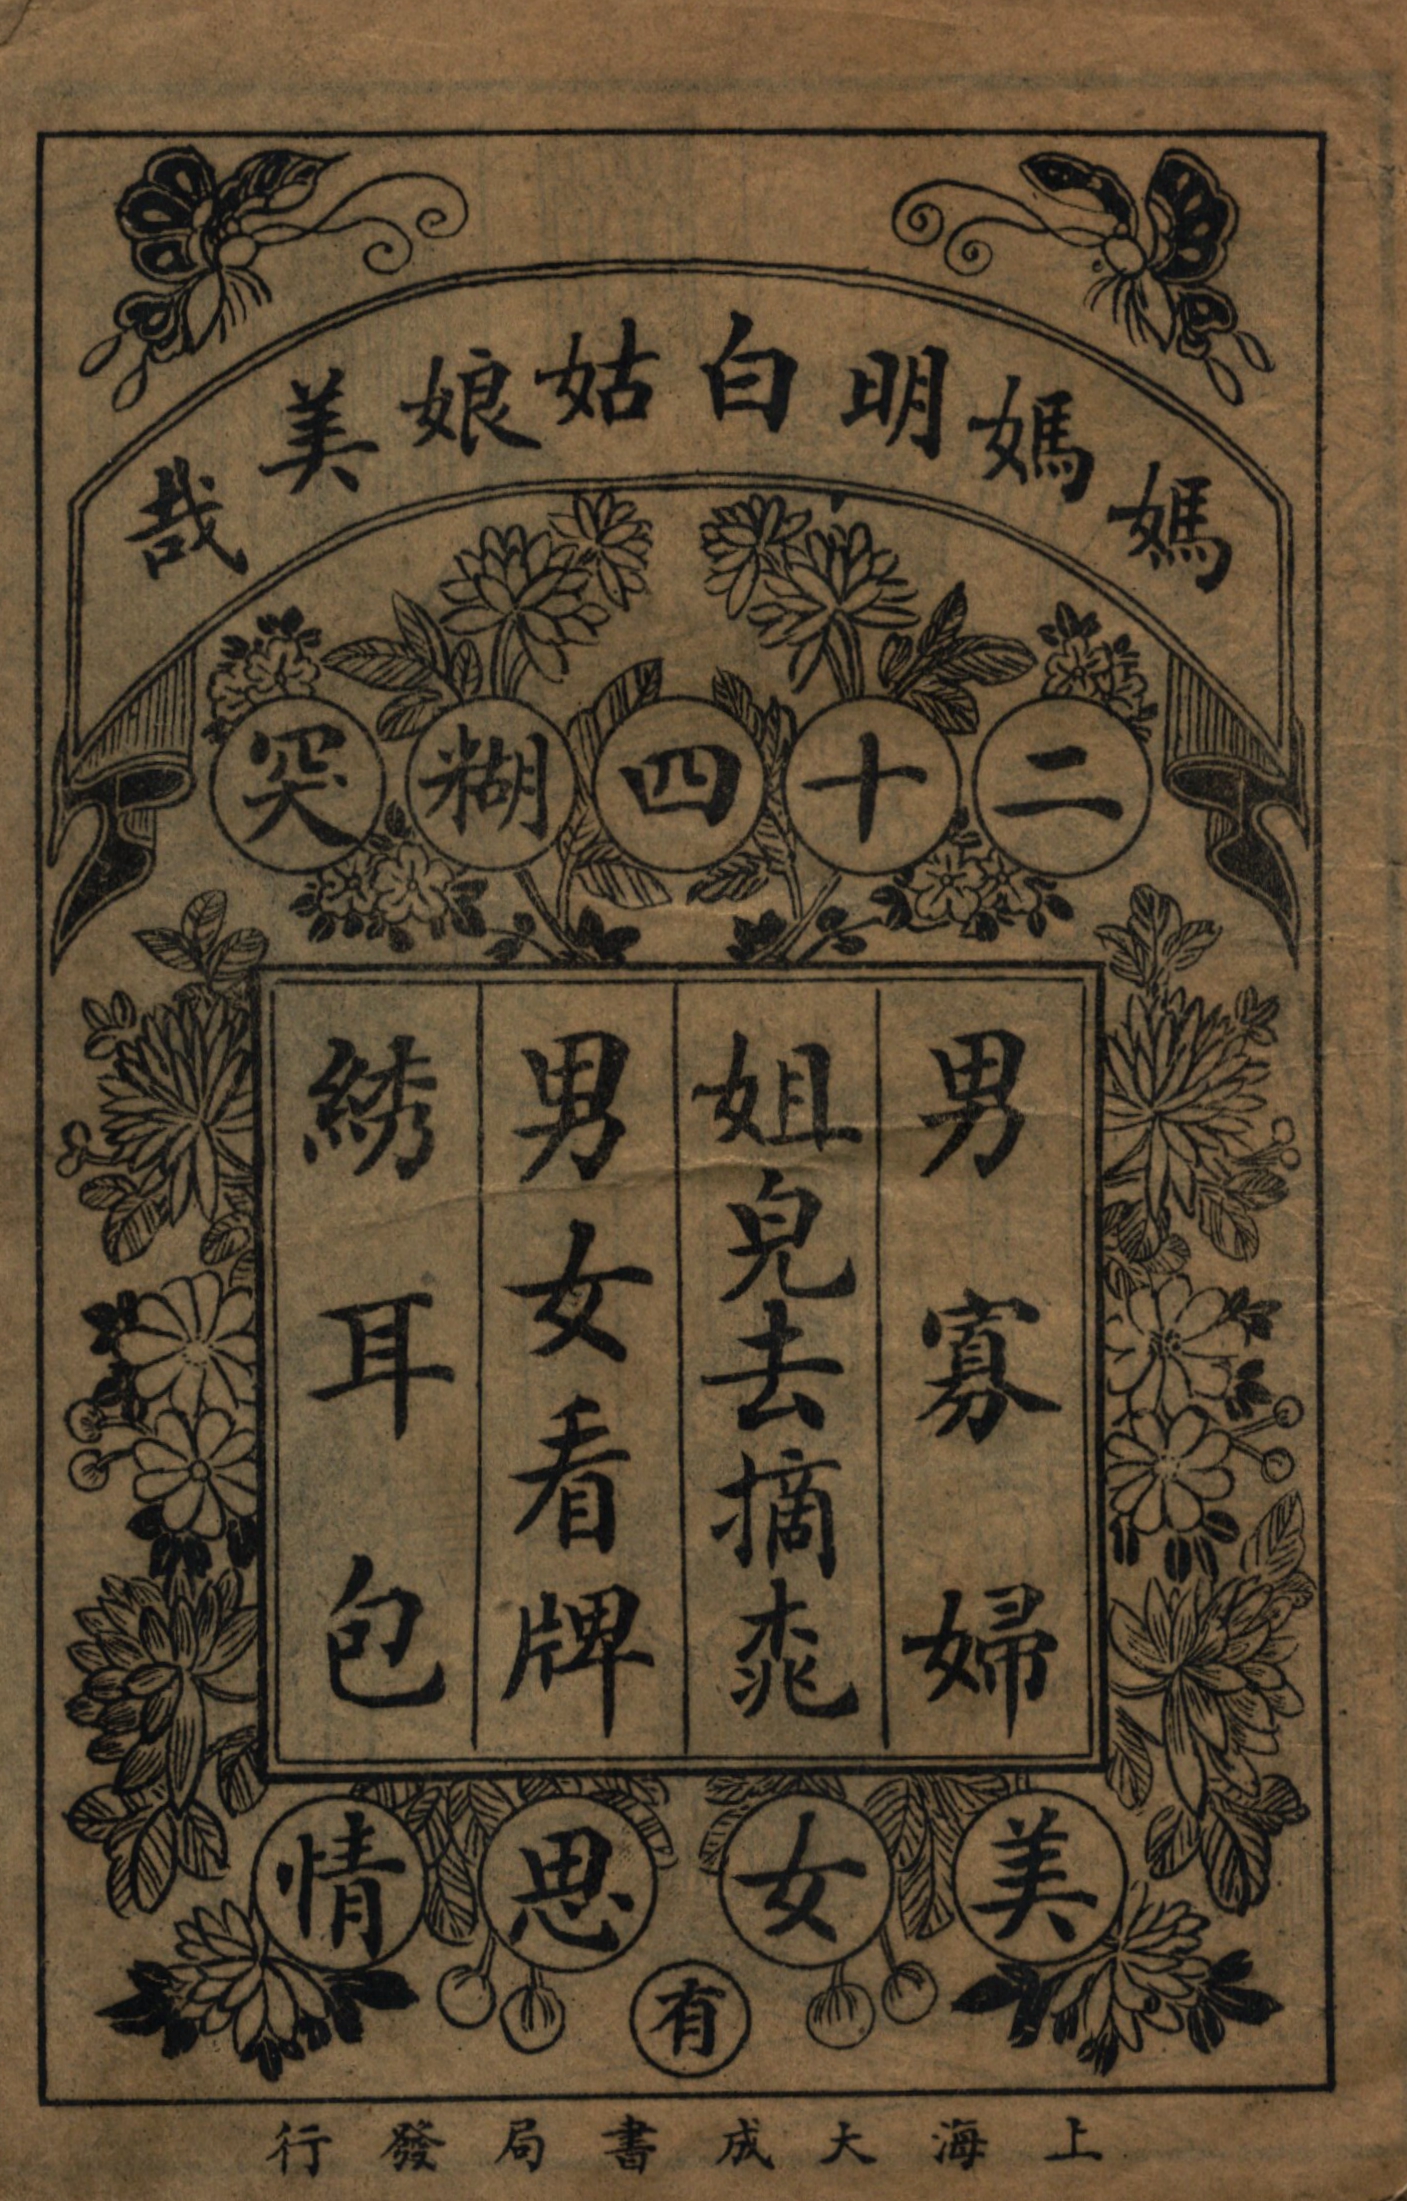 媽媽明白姑娘美哉
二十四糊突
男寡婦
姐兒去摘桃
男女看牌
綉耳包
美女思情
有
上海大成書局發行